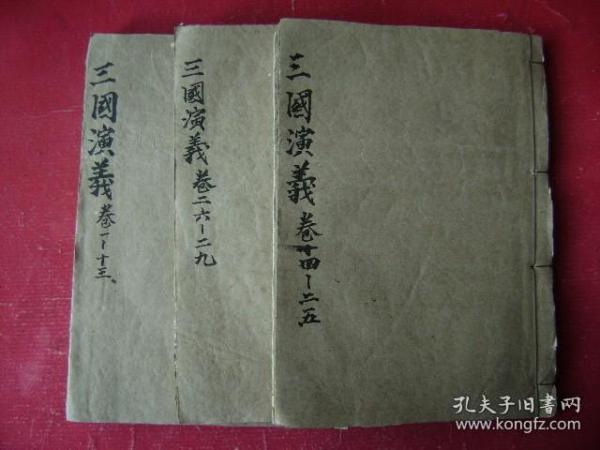 三國演義 卷一-十三、
三國演義 卷二六-二九
三國演義 卷十四-二五
孔夫子旧書网
www.kongfz.com